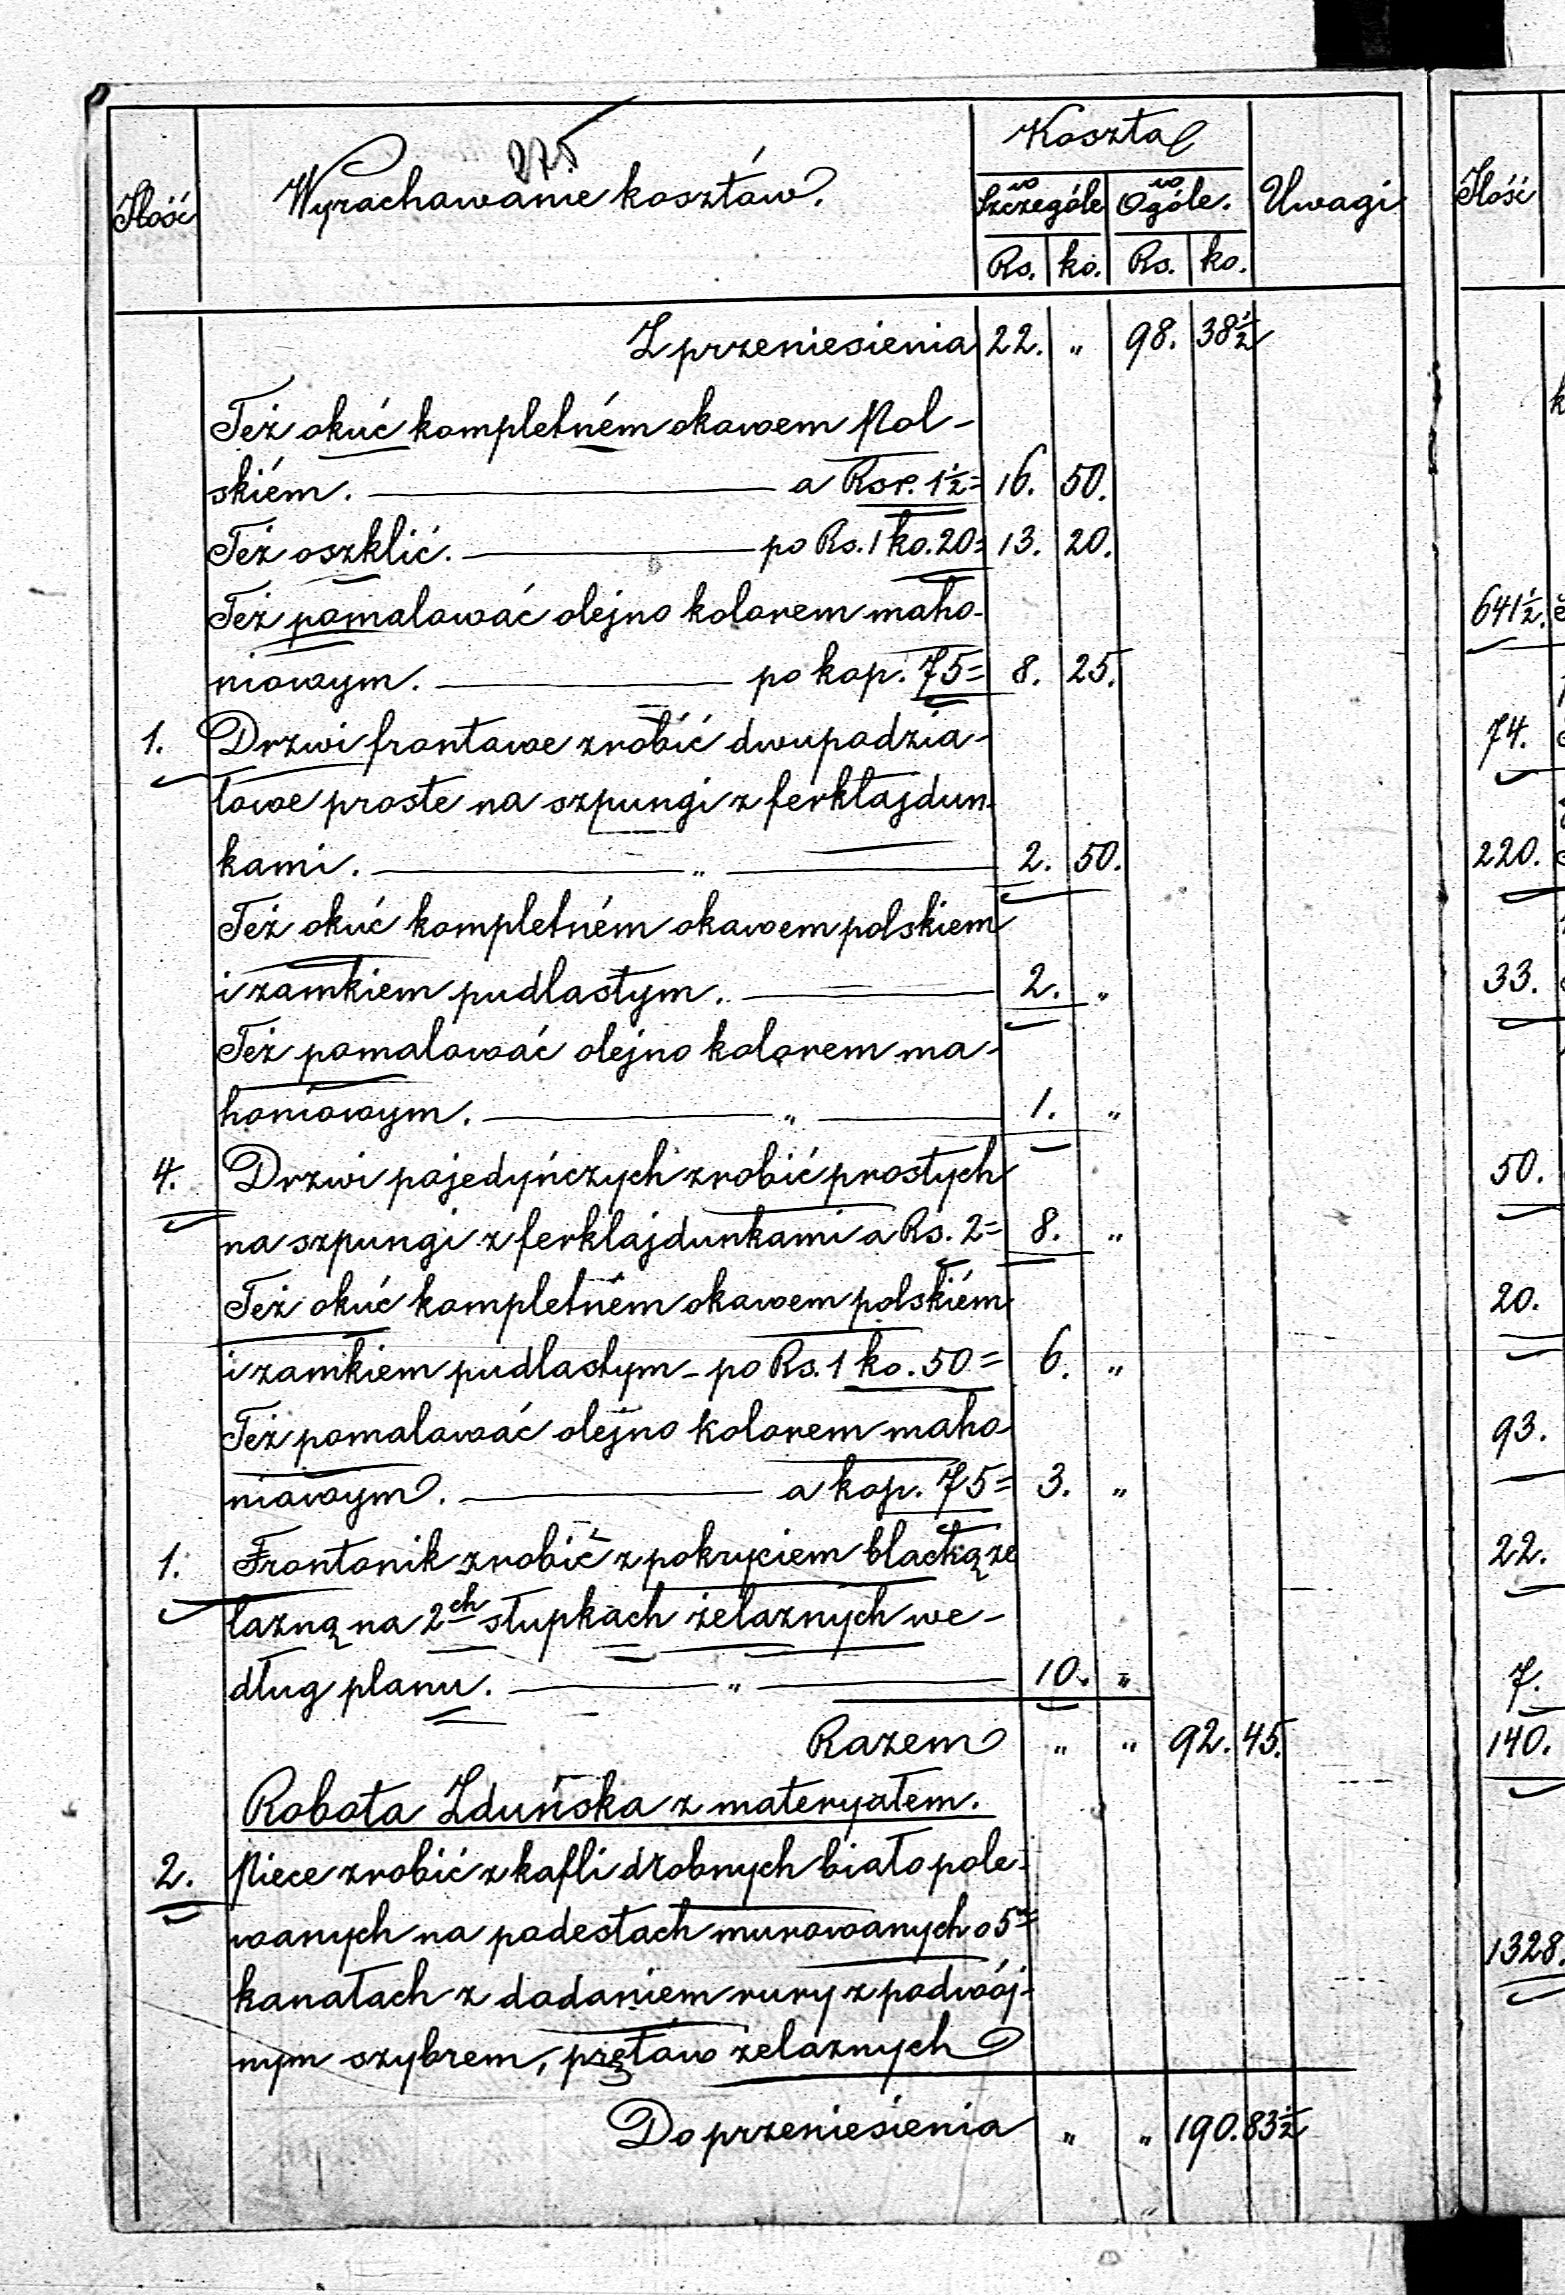 275
Ilość Wyrachowanie kosztów. Koszta Uwagi Ilość
w Szczególe w Ogóle.
Rs. ko. Rs. ko.
Z przeniesienia 22. „ 98. 38½
Też okuć kompletném okowem Pol-
skiém. a Rsr. 1½= 16. 50.
Też oszklić. po Rs. 1 ko. 20= 13. 20.
Też pomalować olejno kolorem maho- 641½.
niowym. po kop. 75= 8. 25.
1. Drzwi frontowe zrobić dwupodzia- 74.
łowe proste na szpungi z ferklajdun-
kami. „ 2. 50. 220.
Też okuć kompletném okowem polskiem
i zamkiem pudlastym. 2. „ 33.
Też pomalować olejno kolorem ma-
honiowym. „ 1. „
4. Drzwi pojedyńczych zrobić prostych 50.
na szpungi z ferklajdunkami a Rs. 2= 8. „
Też okuć kompletném okowem polskiém 20.
i zamkiem pudlastym - po Rs. 1 ko. 50= 6. „
Też pomalować olejno kolorem maho- 93.
niowym. a kop. 75= 3. „
1. Frontonik zrobić z pokryciem blachą że 22.
lazną na 2ch słupkach żelaznych we-
dług planu. „ 10. „ 7.
Razem „ „ 92. 45. 140.
Robota Zduńska z materyałem.
2. Piece zrobić z kafli drobnych biało pole-
wanych na podestach murowanych o 5 1328.
kanałach z dodaniem rury z podwój-
nym szybrem, prętów żelaznych
Do przeniesienia „ „ 190. 83½